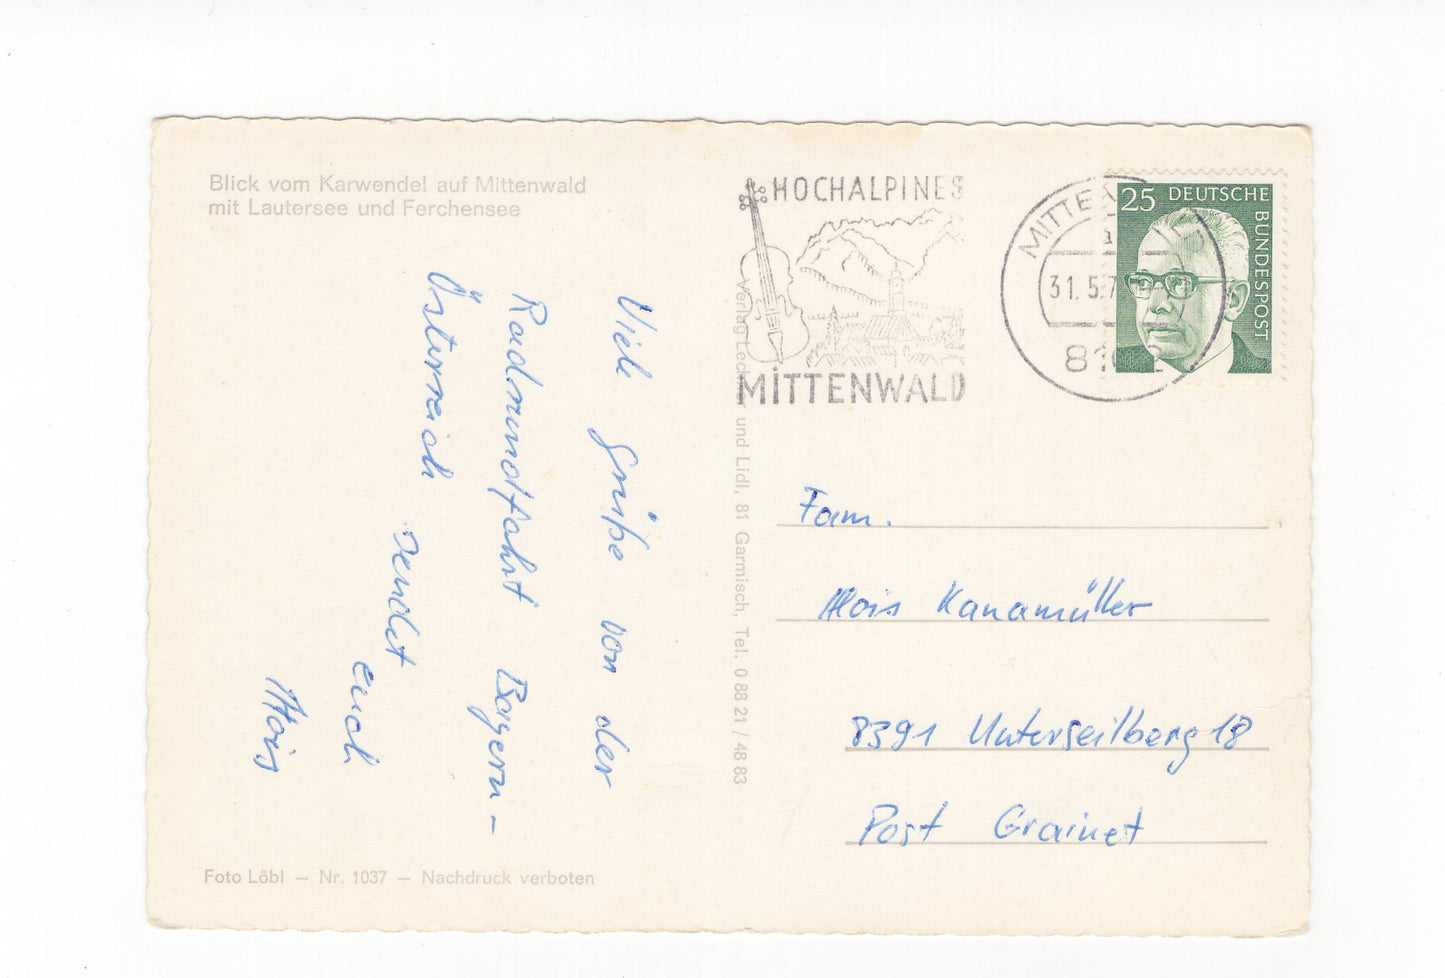 Blick vom Karwendel auf Mittenwald
mit Lautersee und Ferchensee
Viele Grüße von der
Radrundfahrt Bayern –
Österreich
sendet
euch
Alois
Foto Löbl – Nr. 1037 – Nachdruck verboten
und Lidl, 81 Garmisch, Tel. 0 88 21 / 48 83
HOCHALPINES
MiTTENWALD
31.5.7
25 DEUTSCHE
BUNDESPOST
Fam.
Alois Kanamüller
8391 Unterseilberg 18
Post Grainet